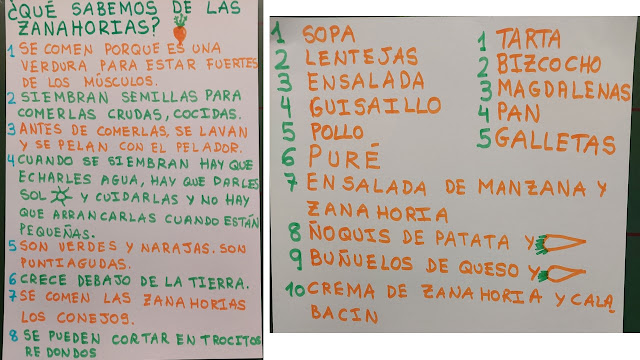 ¿QUÉ SABEMOS DE LAS
ZANAHORIAS?
1 SE COMEN PORQUE ES UNA
VERDURA PARA ESTAR FUERTES
DE LOS MÚSCULOS.
2 SIEMBRAN SEMILLAS PARA
COMERLAS CRUDAS, COCIDAS.
3 ANTES DE COMERLAS, SE LAVAN
Y SE PELAN CON EL PELADOR.
4 CUANDO SE SIEMBRAN HAY QUE
ECHARLES AGUA, HAY QUE DARLES
SOL Y CUIDARLAS Y NO HAY
QUE ARRANCARLAS CUANDO ESTÁN
PEQUEÑAS.
5 SON VERDES Y NARAJAS. SON
PUNTIAGUDAS.
6 CRECE DEBAJO DE LA TIERRA.
7 SE COMEN LAS ZANAHORIAS
LOS CONEJOS.
8 SE PUEDEN CORTAR EN TROCITOS
REDONDOS
1 SOPA
2 LENTEJAS
3 ENSALADA
4 GUISAILLO
5 POLLO
6 PURÉ
7 ENSALADA DE MANZANA Y
ZANAHORIA
8 ÑOQUIS DE PATATA Y
9 BUÑUELOS DE QUESO Y
10 CREMA DE ZANAHORIA Y CALA
BACIN
1 TARTA
2 BIZCOCHO
3 MAGDALENAS
4 PAN
5 GALLETAS